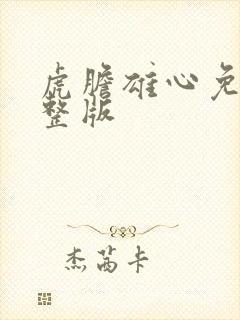 虎膽雄心免
整版
杰茜卡